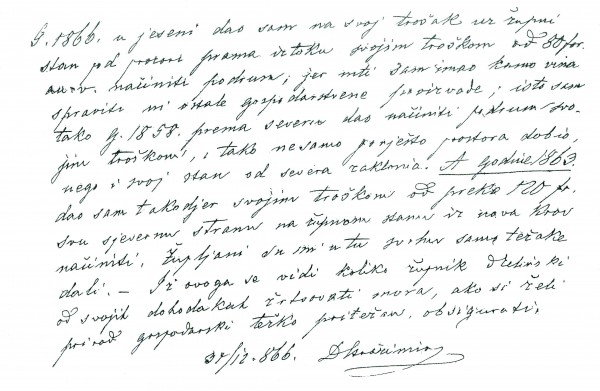 G. 1866. u jeseni dao sam na svoj trošak uz župni
stan pod prostori prama iztoku svojim troškom od 80 for.
načiniti podrum; jer niti sam imao kamo vina
spraviti ni ostale gospodarstvene proizvode; isto sam
tako G. 1858. prema severu dao načiniti podrum svo-
jim troškom, i tako nesamo porješto prostora dobio,
nego i svoj stan od severa zaklonia. A godine 1863.
dao sam takodjer svojim troškom od preko 120 fr.
svu sjevernu stranu na župnom stanu iz nova krov
načiniti. Župljani su mi u tu svrhu samo težake
dali. — Iz ovoga se vidi koliko župnik
od svojih dohodakah žrtvovati mora, ako si želi
prirod gospodarski teško pritežan, obsigurati.
/12. 866.